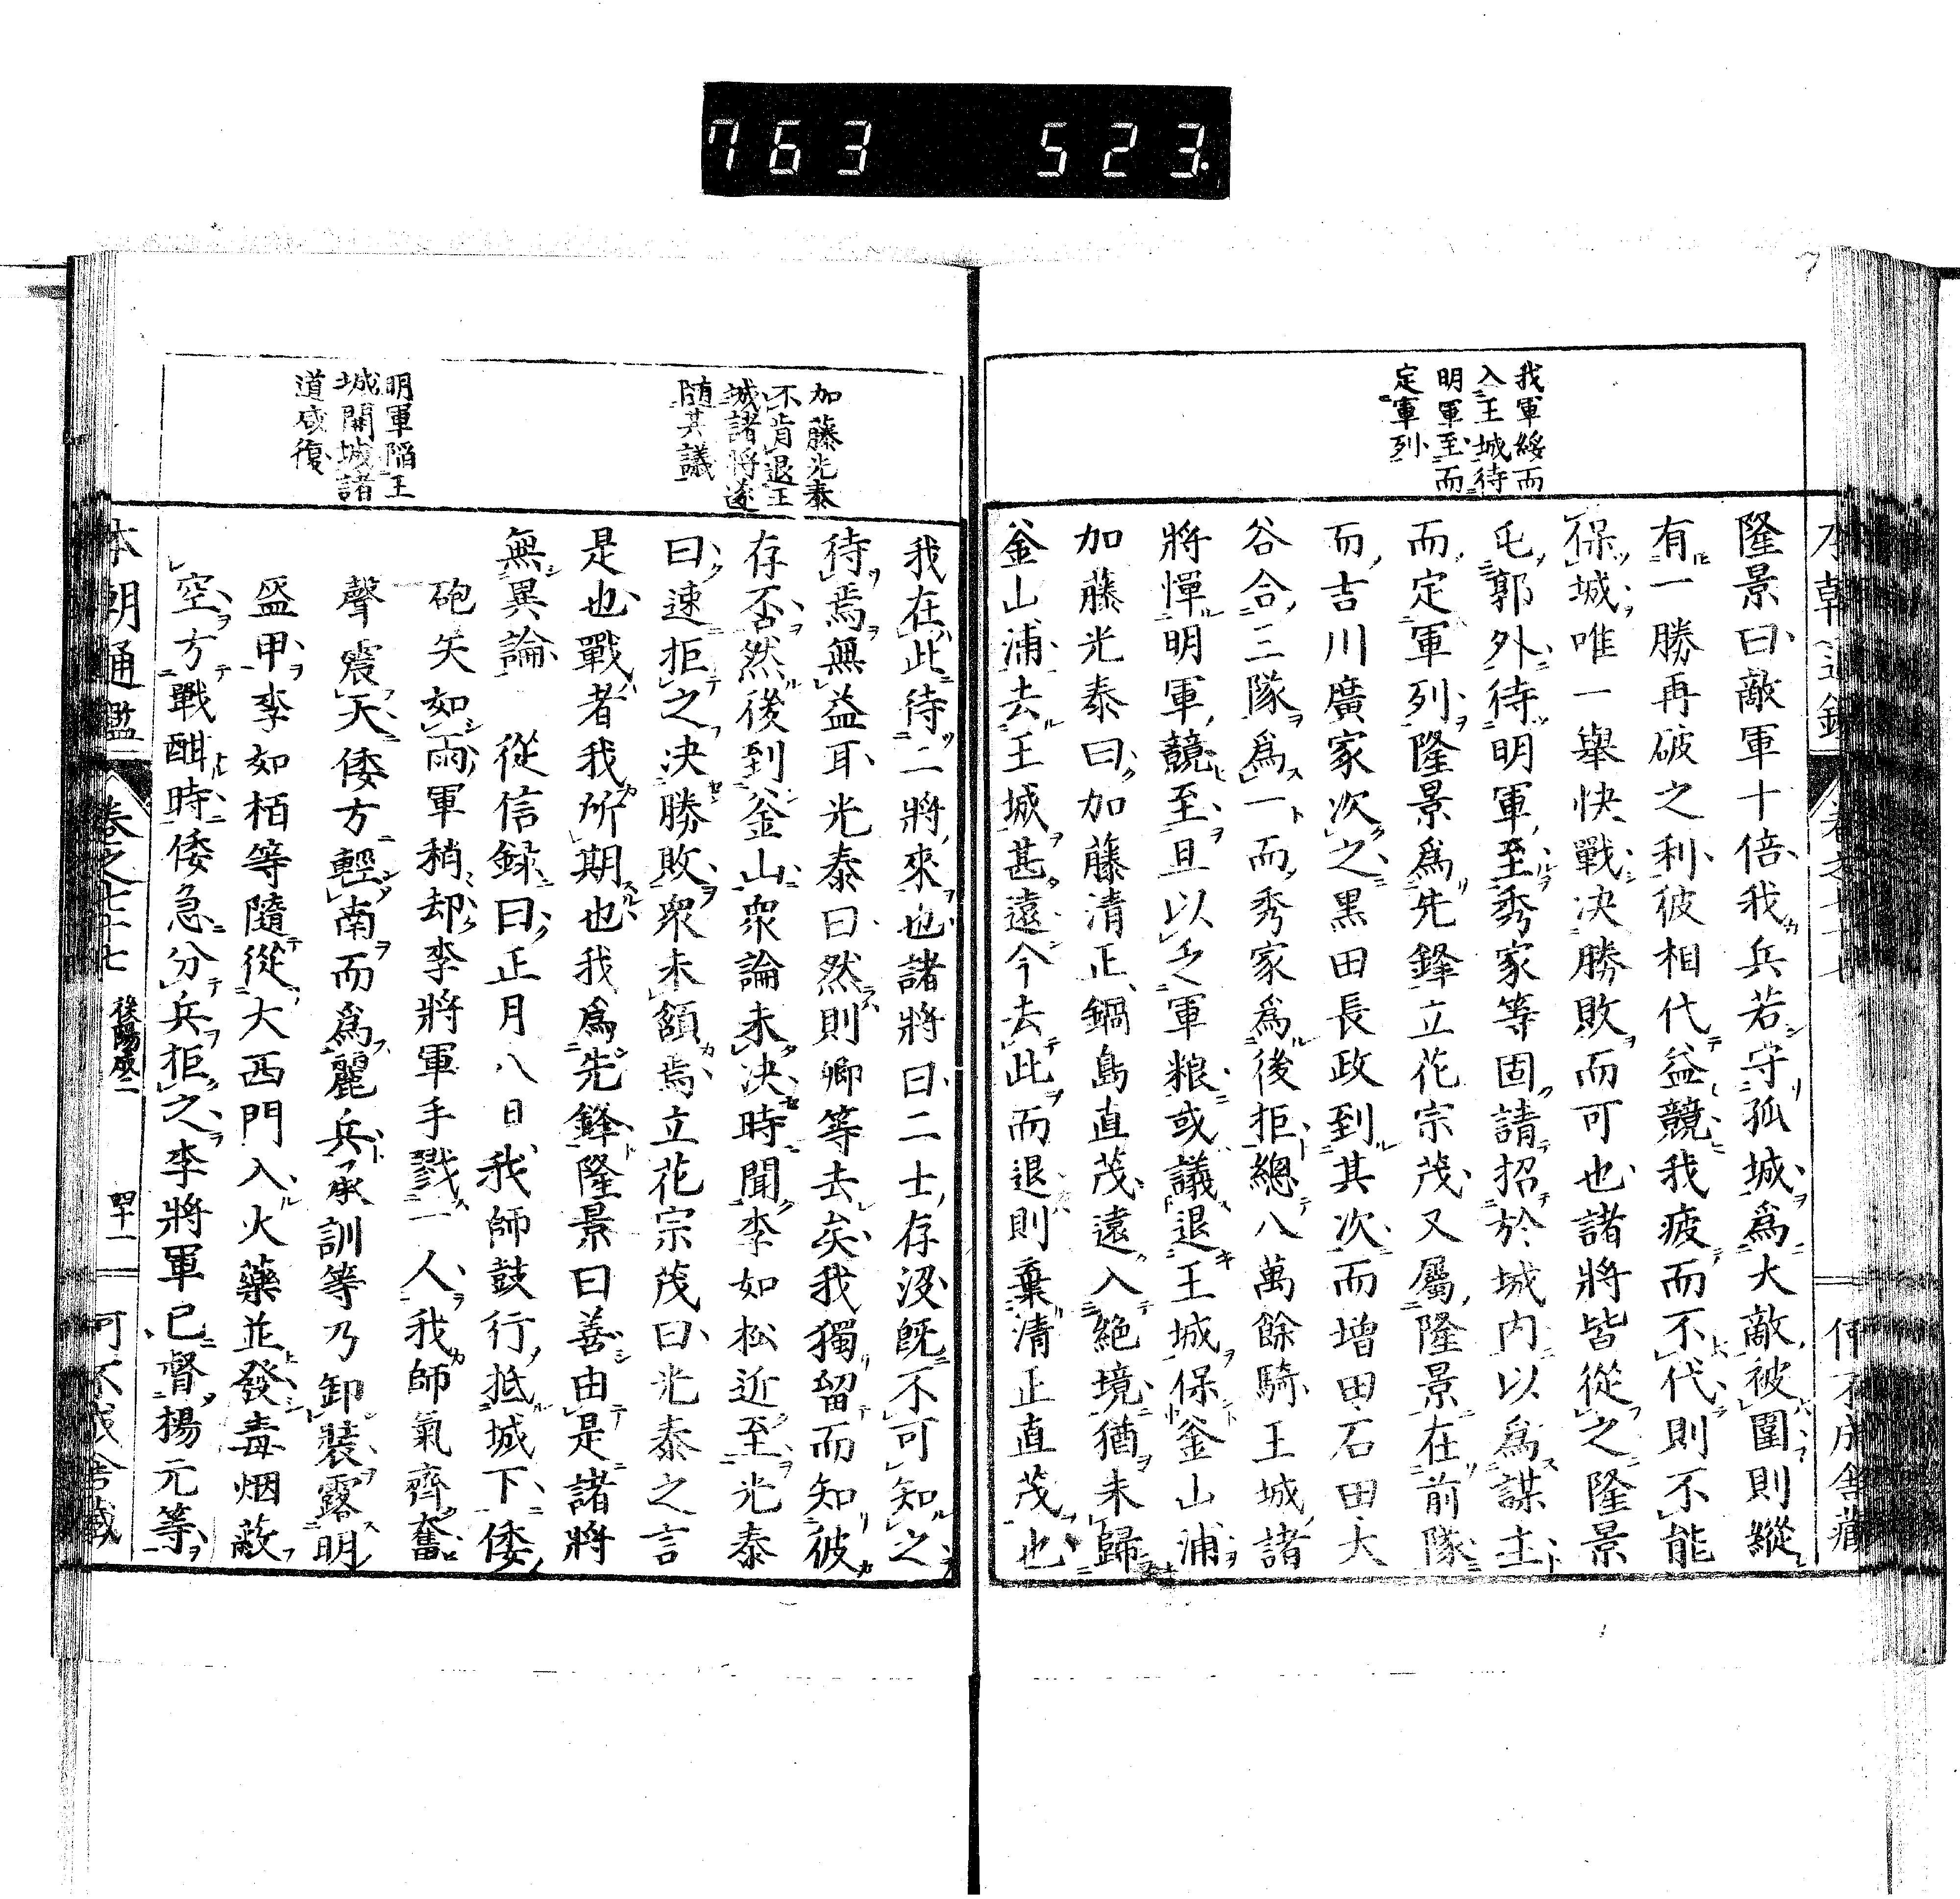 763 523.
我軍綏而
入王城待
明軍至而
定軍列
隆景曰敵軍十倍我兵若守孤城爲大敵被圍則縱
有一勝再破之利彼相代益競我疲而不代則不能
保城唯一舉快戰决勝敗而可也諸將皆從之隆景
屯郭外待明軍至秀家等固請招於城内以爲謀主
而定軍列隆景爲先鋒立花宗茂又屬隆景在前隊
而吉川廣家次之黒田長政到其次而增田石田大
谷合三隊爲一而秀家爲後拒總八萬餘騎王城諸
將憚明軍競至且以乏軍粮或議退王城保釜山浦
加藤光泰曰加藤清正鍋島直茂遠入絶境猶未歸
釜山浦去王城甚遠今去此而退則棄清正直茂也
加藤光泰
不肯退王
城諸將遂
隨其議
明軍陷王
城開城諸
道咸復
我在此待二將來也諸將曰二士存沒既不可知之
待焉無益耳光泰曰然則卿等去矣我獨留而知彼
存否然後到釜山衆論未决時聞李如松近至光泰
曰速拒之决勝敗衆未額焉立花宗茂曰光泰之言
是也戰者我所期也我爲先鋒隆景曰善由是諸將
無異論 從信録曰正月八日我師鼓行抵城下倭
砲矢如雨軍稍却李將軍手戮一人我師氣齊奮
聲震天倭方輕南而爲麗兵承訓等乃卸裝露明
盔甲李如栢等隨從大西門入火藥並發毒烟蔽
空方戰酣時倭急分兵拒之李將軍已督楊元等
本朝通鑑 卷之七十七 後陽成二 四十一 可不成舍藏